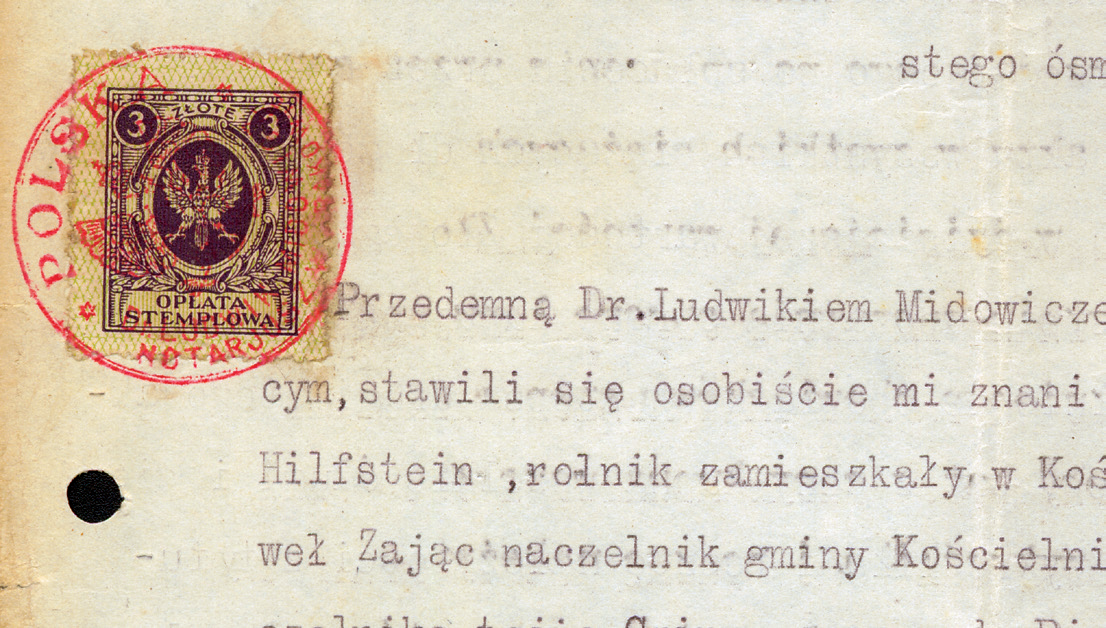 stego ósm
POLSKA
3 ZŁOTE 3
OPŁATA
STEMPLOWA
NOTARJ
Przedemną Dr.Ludwikiem Midowicze
cym,stawili się osobiście mi znani
Hilfstein ,rolnik zamieszkały w Koś
weł Zając naczelnik gminy Kościelni